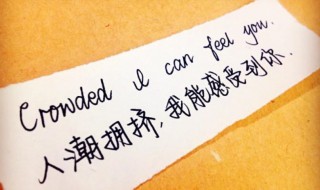 Crowded I can feel you.
人潮拥挤,我能感受到你.